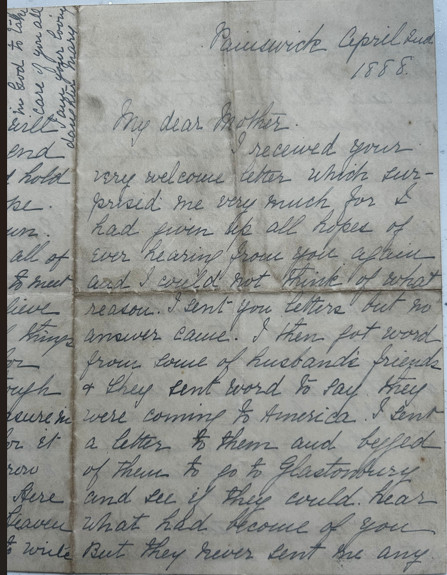 Painswick April 2nd
1888.
My dear Mother.
I received your
very welcome letter which sur-
prised me very much for I
had given up all hopes of
ever hearing from you again
and I could not think of what
reason. I sent you letters but no
answer came. I then got word
from some of husband's friends
& they sent word to say they
were coming to America. I sent
a letter to them and begged
of them to go to Glastonbury
and see if they could hear
what had become of you
But they never sent me any
in God to take
care of you all
your loving
daughter Mary
end
hold
all of
to meet
things
for
Here
Heaven
to write